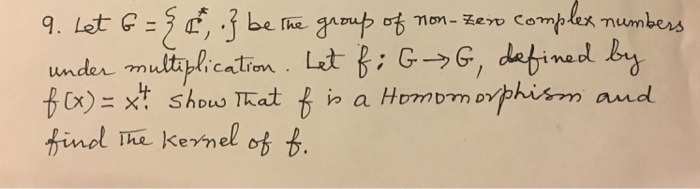 9. Let G = { ℂ*, ·} be The group of non-zero complex numbers
under multiplication. Let f: G → G, defined by
f(x) = x⁴. Show That f is a Homomorphism and
find The Kernel of f.